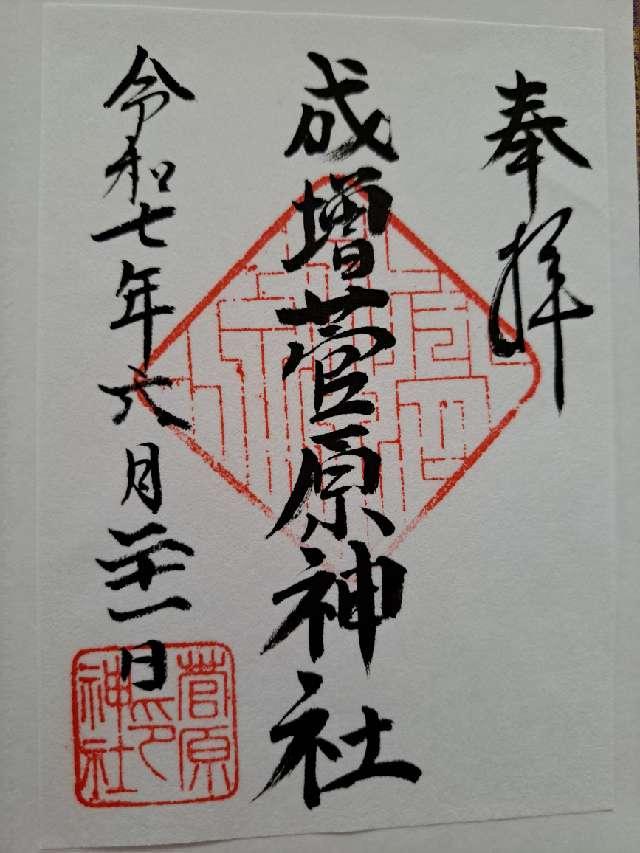 奉拝
成増菅原神社
令和七年六月二十一日
菅原
神社
印